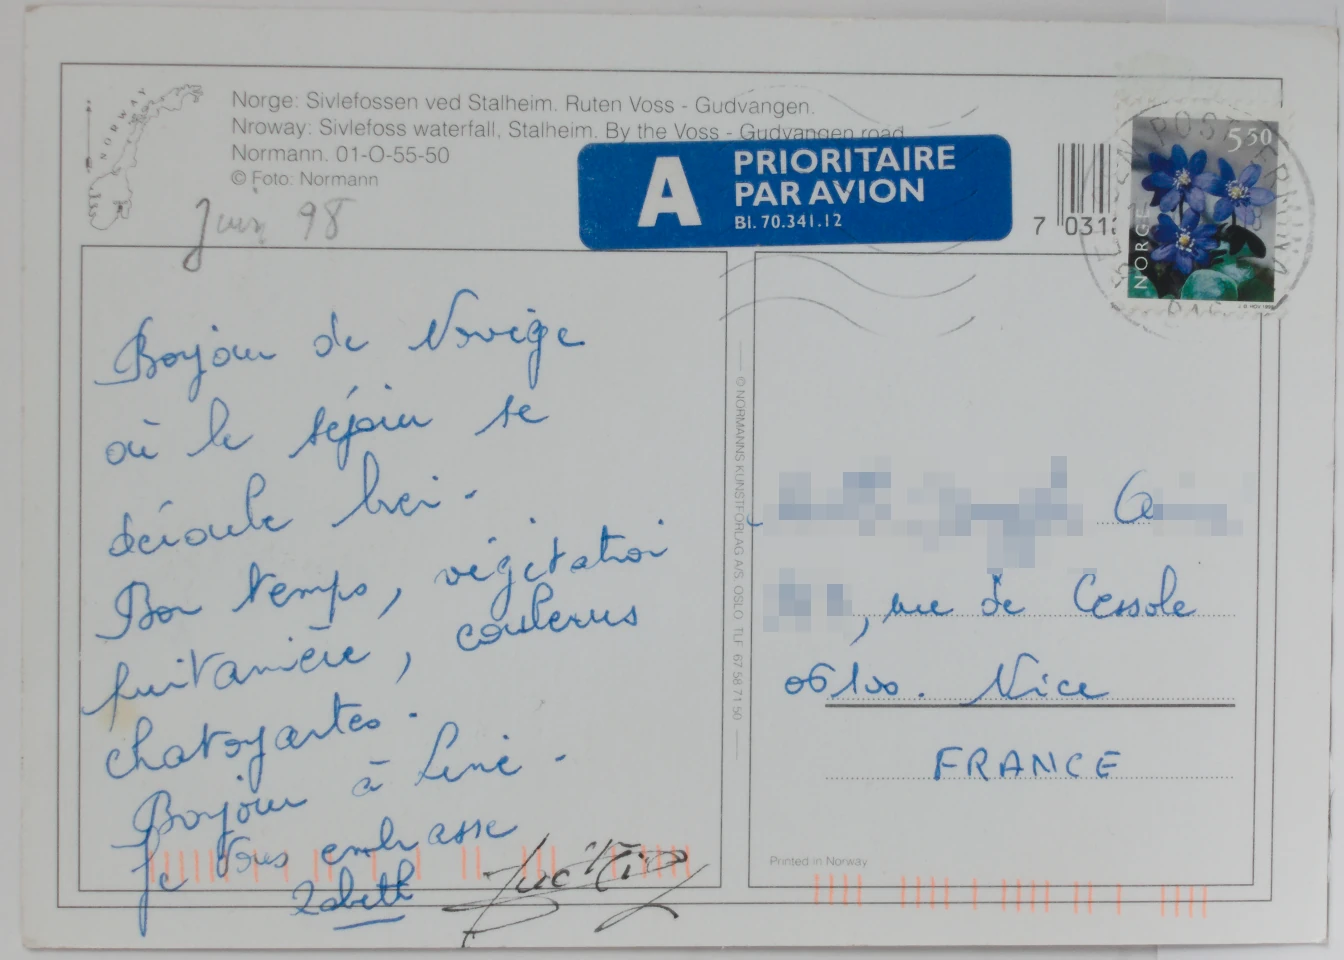 NORWAY
Norge: Sivlefossen ved Stalheim. Ruten Voss - Gudvangen.
Nroway: Sivlefoss waterfall, Stalheim. By the Voss - Gudvangen road
Normann. 01-O-55-50
© Foto: Normann
Juin 98
A PRIORITAIRE
PAR AVION
Bl. 70.341.12
7 0313
550
NORGE
Bonjour de Norvège
où le séjour se
déroule bien.
Bon temps, végétation
printanière, couleurs
chatoyantes.
Bonjour à Line.
Je vous embrasse
Zabeth
© NORMANNS KUNSTFORLAG A/S. OSLO. TLF. 67 58 71 50
, rue de Cessole
06100. Nice
FRANCE
Printed in Norway